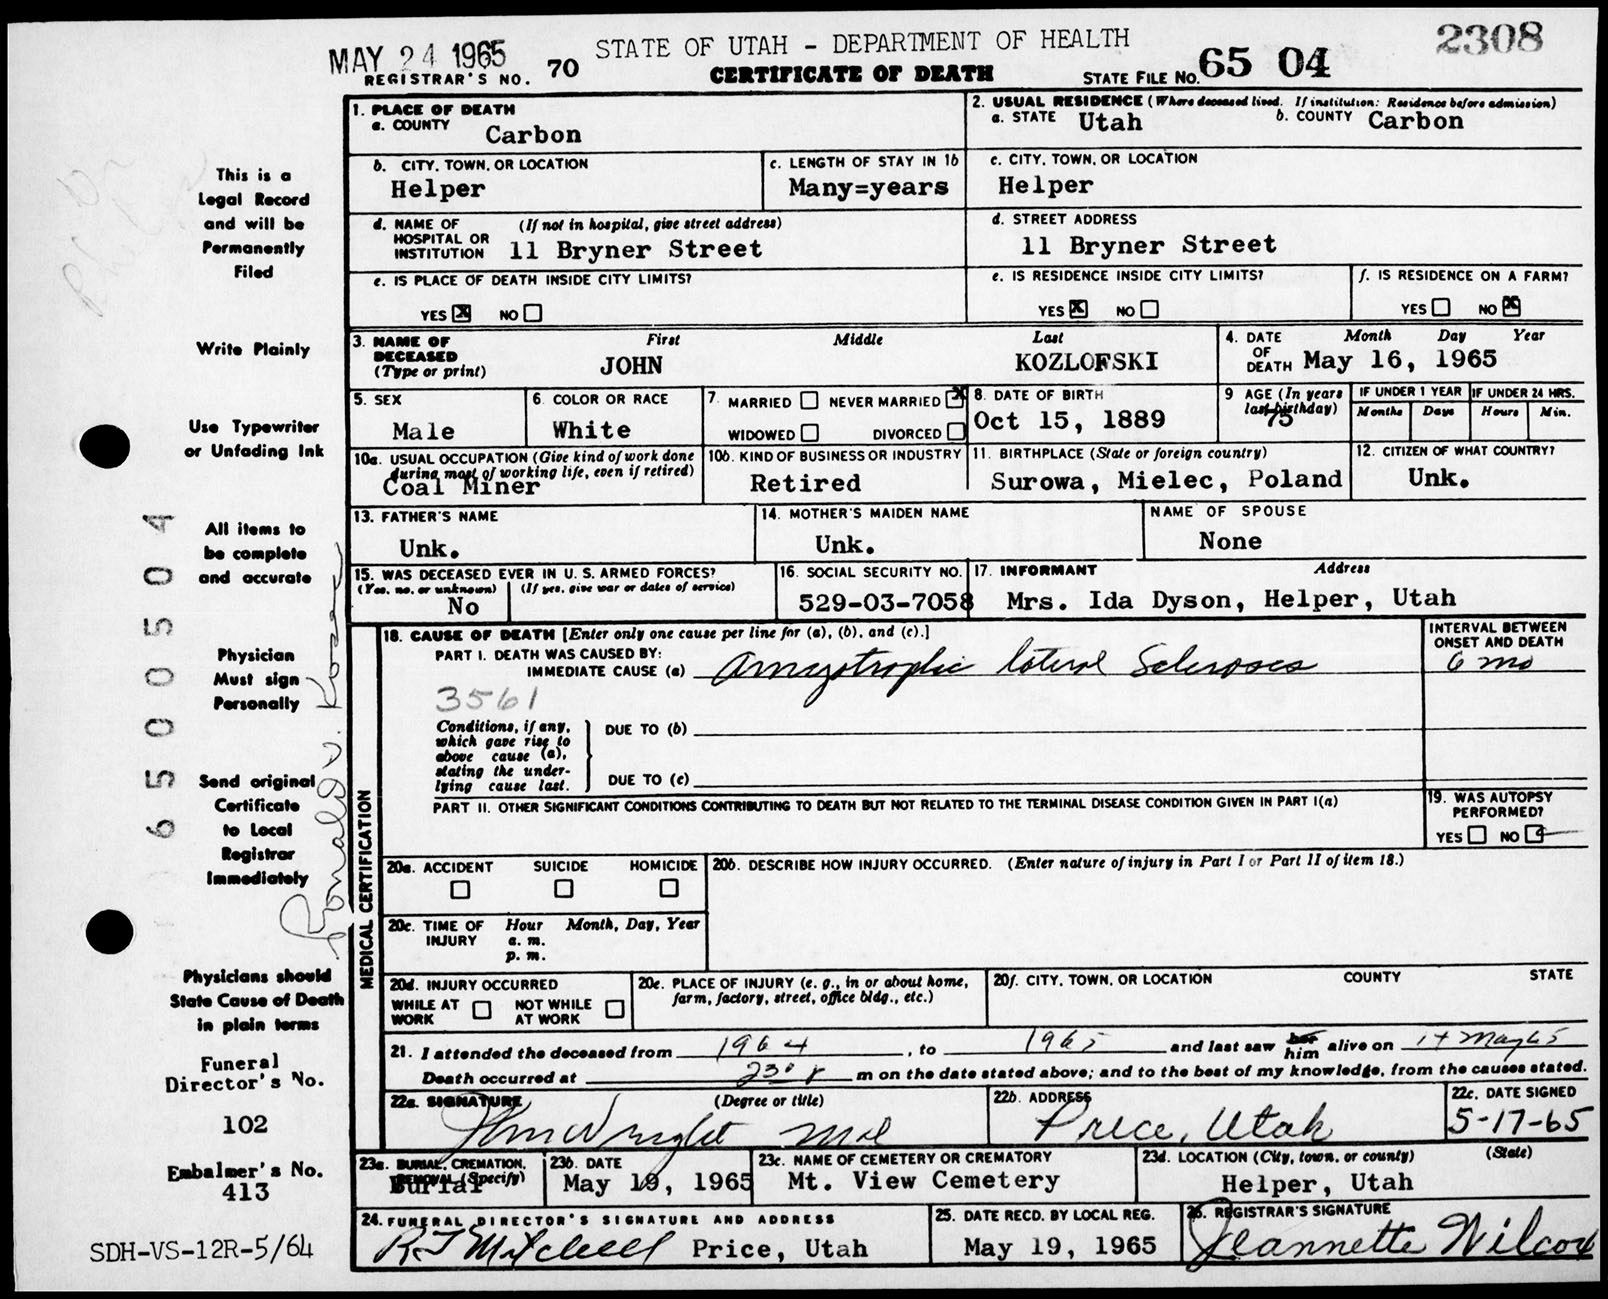 MAY 24 1965
STATE OF UTAH - DEPARTMENT OF HEALTH
2308
REGISTRAR'S NO. 70
CERTIFICATE OF DEATH
STATE FILE NO. 65 04
1. PLACE OF DEATH
a. COUNTY Carbon
2. USUAL RESIDENCE (Where deceased lived. If institution: Residence before admission)
a. STATE Utah b. COUNTY Carbon
b. CITY, TOWN, OR LOCATION
Helper
c. LENGTH OF STAY IN 1b
Many=years
c. CITY, TOWN, OR LOCATION
Helper
d. NAME OF HOSPITAL OR INSTITUTION (If not in hospital, give street address)
11 Bryner Street
d. STREET ADDRESS
11 Bryner Street
e. IS PLACE OF DEATH INSIDE CITY LIMITS?
YES X NO
e. IS RESIDENCE INSIDE CITY LIMITS?
YES X NO
f. IS RESIDENCE ON A FARM?
YES NO X
3. NAME OF DECEASED (Type or print)
First Middle Last
JOHN KOZLOFSKI
4. DATE OF DEATH Month Day Year
May 16, 1965
5. SEX
Male
6. COLOR OR RACE
White
7. MARRIED NEVER MARRIED X
WIDOWED DIVORCED
8. DATE OF BIRTH
Oct 15, 1889
9 AGE (In years last birthday)
75
IF UNDER 1 YEAR
Months Days
IF UNDER 24 HRS.
Hours Min.
10a. USUAL OCCUPATION (Give kind of work done during most of working life, even if retired)
Coal Miner
10b. KIND OF BUSINESS OR INDUSTRY
Retired
11. BIRTHPLACE (State or foreign country)
Surowa, Mielec, Poland
12. CITIZEN OF WHAT COUNTRY?
Unk.
13. FATHER'S NAME
Unk.
14. MOTHER'S MAIDEN NAME
Unk.
NAME OF SPOUSE
None
15. WAS DECEASED EVER IN U. S. ARMED FORCES?
(Yes, no, or unknown) (If yes, give war or dates of service)
No
16. SOCIAL SECURITY NO.
529-03-7058
17. INFORMANT Address
Mrs. Ida Dyson, Helper, Utah
MEDICAL CERTIFICATION
18. CAUSE OF DEATH [Enter only one cause per line for (a), (b), and (c).]
PART I. DEATH WAS CAUSED BY:
IMMEDIATE CAUSE (a) Amyotrophic lateral Scleroses
INTERVAL BETWEEN ONSET AND DEATH
6 mo
3561
Conditions, if any, which gave rise to above cause (a), stating the underlying cause last.
DUE TO (b)
DUE TO (c)
PART II. OTHER SIGNIFICANT CONDITIONS CONTRIBUTING TO DEATH BUT NOT RELATED TO THE TERMINAL DISEASE CONDITION GIVEN IN PART I(a)
19. WAS AUTOPSY PERFORMED?
YES NO
20a. ACCIDENT SUICIDE HOMICIDE
20b. DESCRIBE HOW INJURY OCCURRED. (Enter nature of injury in Part I or Part II of item 18.)
20c. TIME OF INJURY Hour Month, Day, Year
a. m.
p. m.
20d. INJURY OCCURRED
WHILE AT WORK NOT WHILE AT WORK
20e. PLACE OF INJURY (e. g., in or about home, farm, factory, street, office bldg., etc.)
20f. CITY, TOWN, OR LOCATION COUNTY STATE
21. I attended the deceased from 1964, to 1965 and last saw her him alive on 14 May 65
Death occurred at m on the date stated above; and to the best of my knowledge, from the causes stated.
22a. SIGNATURE (Degree or title)
Wright MD
22b. ADDRESS
Price, Utah
22c. DATE SIGNED
5-17-65
23a. BURIAL, CREMATION, REMOVAL (Specify)
Burial
23b. DATE
May 19, 1965
23c. NAME OF CEMETERY OR CREMATORY
Mt. View Cemetery
23d. LOCATION (City, town, or county) (State)
Helper, Utah
24. FUNERAL DIRECTOR'S SIGNATURE AND ADDRESS
R J Mitchell Price, Utah
25. DATE RECD. BY LOCAL REG.
May 19, 1965
26. REGISTRAR'S SIGNATURE
Jeannette Wilcox
This is a
Legal Record
and will be
Permanently
Filed
Write Plainly
Use Typewriter
or Unfading Ink
All items to
be complete
and accurate
Physician
Must sign
Personally
Send original
Certificate
to Local
Registrar
Immediately
Physicians should
State Cause of Death
in plain terms
Funeral
Director's No.
102
Embalmer's No.
413
SDH-VS-12R-5/64
6500504
Ronald V.